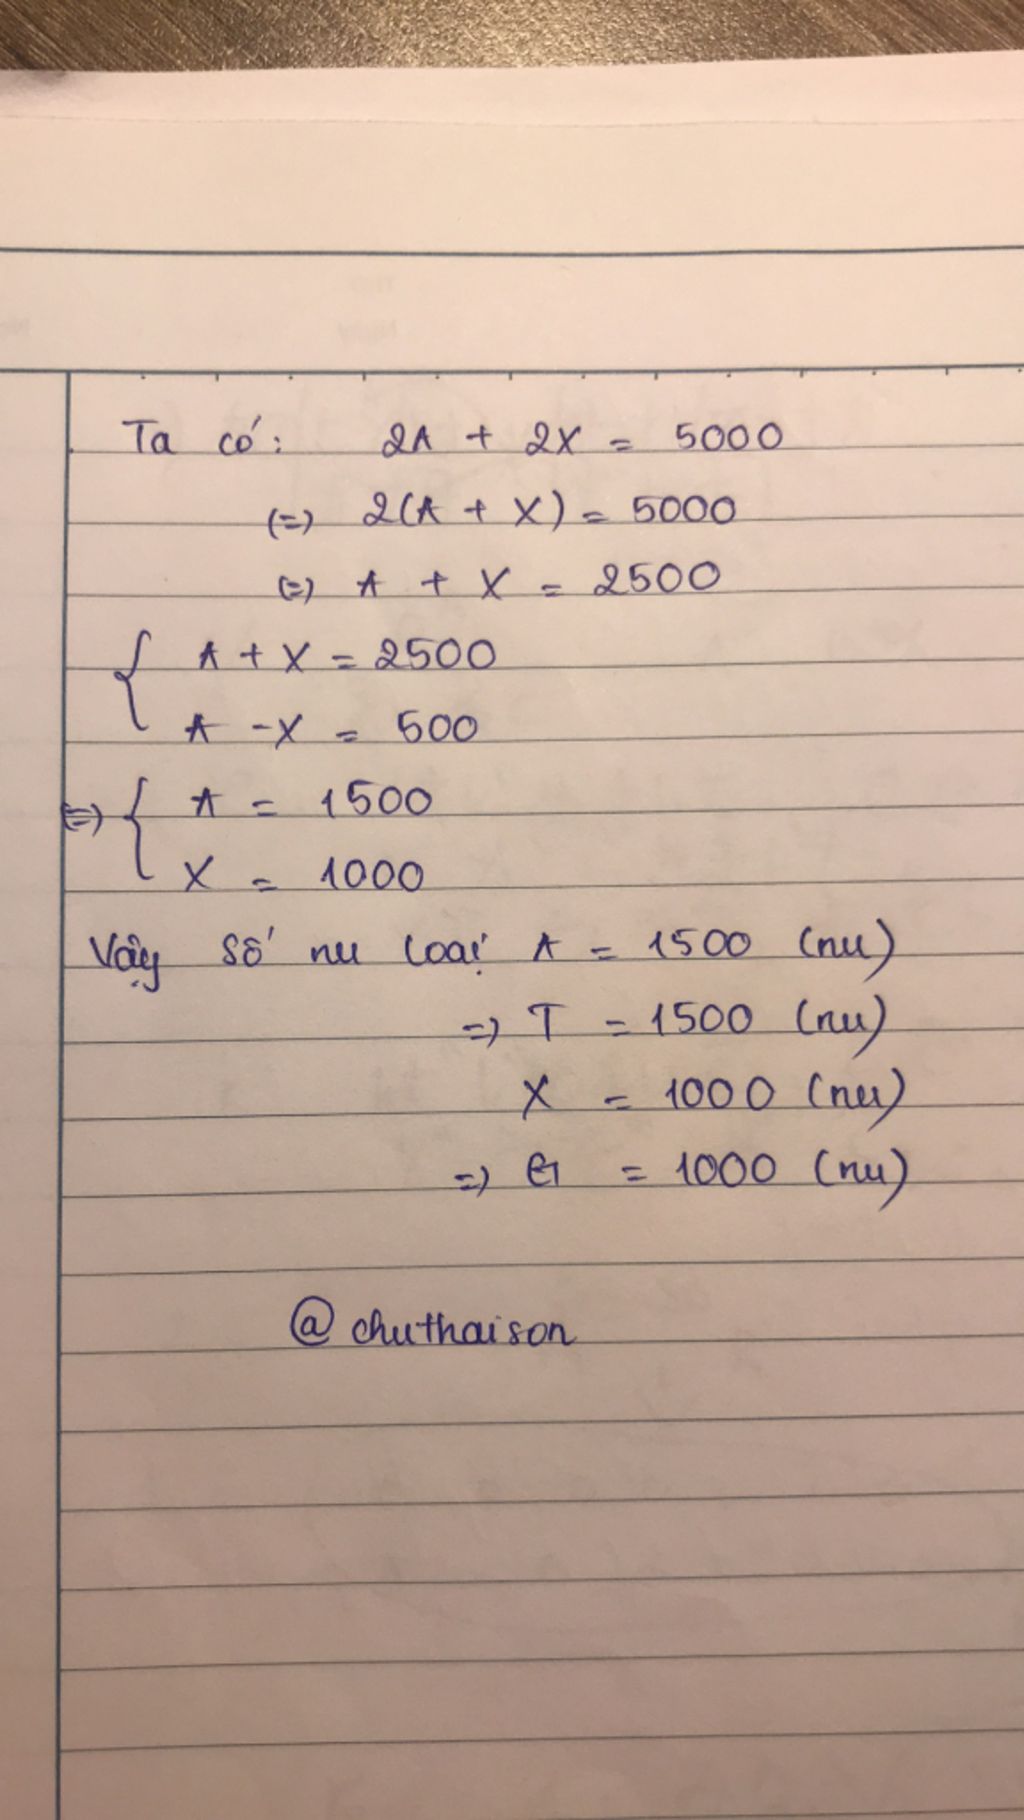 Ta có: 2A + 2X = 5000
(=) 2(A + X) = 5000
(=) A + X = 2500
{ A + X = 2500
A - X = 500
(=) { A = 1500
X = 1000
Vậy số nu loại A = 1500 (nu)
=) T = 1500 (nu)
X = 1000 (nu)
=) G = 1000 (nu)
@chuthaison